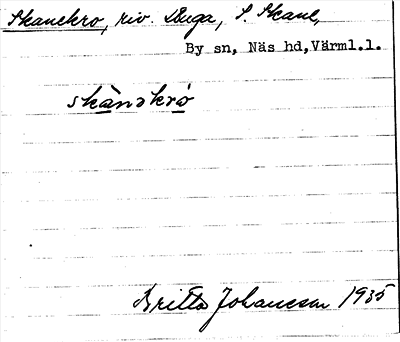 Skanekro, riv. Stuga, S. Skane,
By sn, Näs hd,Värml.l.
skànəkrò
Britta Johansson 1935